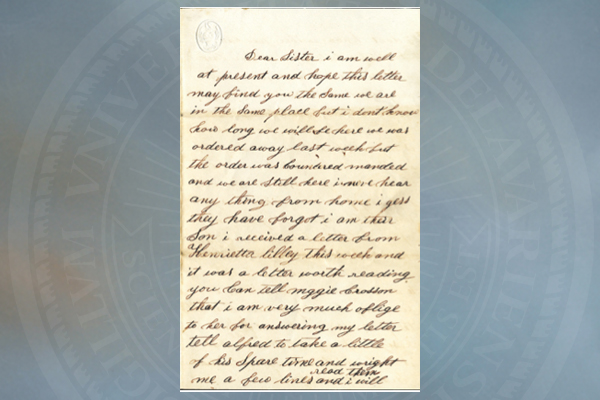 Dear Sister i am well
at present and hope this letter
may find you the same we are
in the same place but i dont know
how long we will be here we was
ordered away last week but
the order was countered manded
and we are still here i never hear
any thing from home i gess
they have forgot i am their
son i received a letter from
Henrietta libley this week and
it was a letter worth reading
you can tell mggie Crosson
that i am very much oblige
to her for answering my letter
tell alfred to take a little
of his spare time and wright
read them
me a few lines and i will